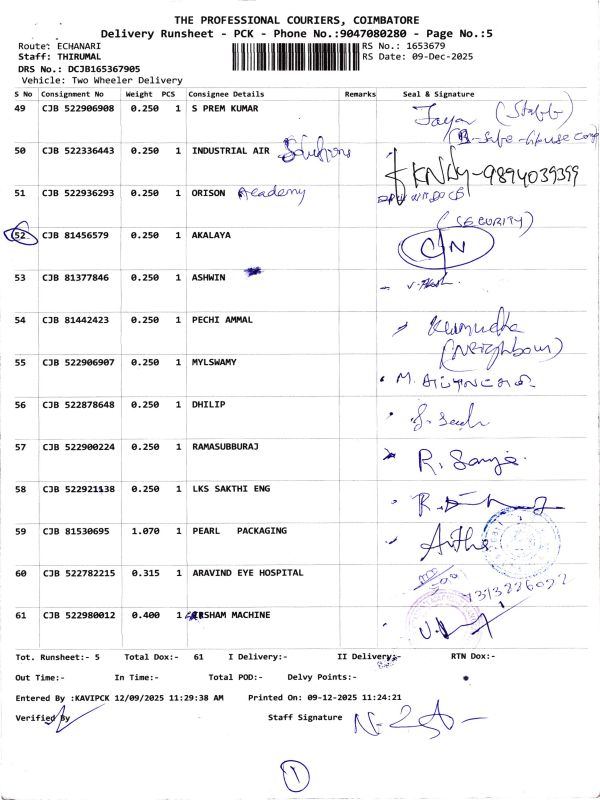 THE PROFESSIONAL COURIERS, COIMBATORE
Delivery Runsheet - PCK - Phone No.:9047080280 - Page No.:5
Route: ECHANARI RS No.: 1653679
Staff: THIRUMAL RS Date: 09-Dec-2025
DRS No.: DCJB165367905
Vehicle: Two Wheeler Delivery
S No Consignment No Weight PCS Consignee Details Remarks Seal & Signature
49 CJB 522906908 0.250 1 S PREM KUMAR Jaya (Staff)
50 CJB 522336443 0.250 1 INDUSTRIAL AIR Solutions 9894039399
51 CJB 522936293 0.250 1 ORISON Academy
(SECURITY)
52 CJB 81456579 0.250 1 AKALAYA
53 CJB 81377846 0.250 1 ASHWIN
54 CJB 81442423 0.250 1 PECHI AMMAL
(Neighbour)
55 CJB 522906907 0.250 1 MYLSWAMY
56 CJB 522878648 0.250 1 DHILIP
57 CJB 522900224 0.250 1 RAMASUBBURAJ
58 CJB 522921138 0.250 1 LKS SAKTHI ENG
59 CJB 81530695 1.070 1 PEARL PACKAGING
60 CJB 522782215 0.315 1 ARAVIND EYE HOSPITAL
61 CJB 522980012 0.400 1 ARSHAM MACHINE
Tot. Runsheet:- 5 Total Dox:- 61 I Delivery:- II Delivery:- RTN Dox:-
Out Time:- In Time:- Total POD:- Delvy Points:-
Entered By :KAVIPCK 12/09/2025 11:29:38 AM Printed On: 09-12-2025 11:24:21
Verified By Staff Signature
1